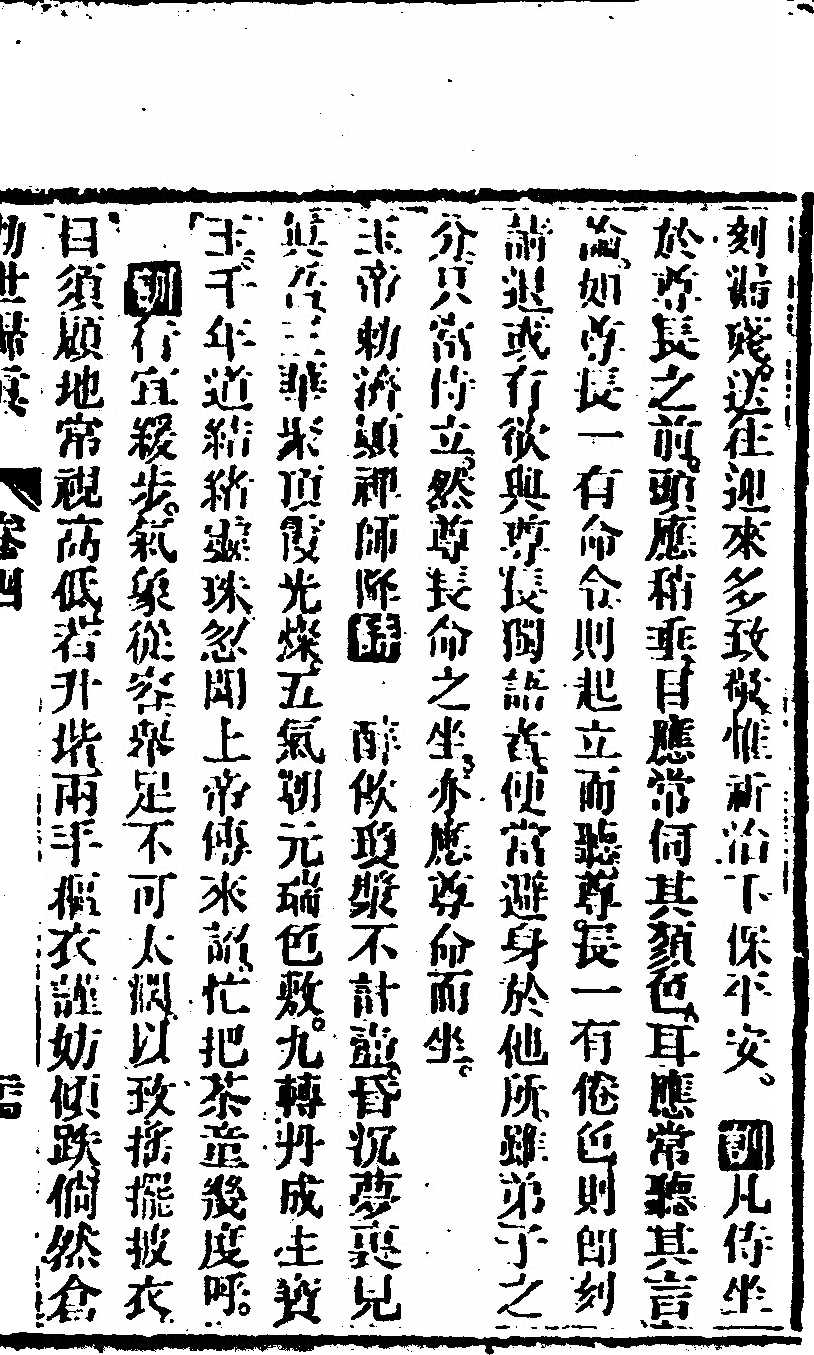 刻漏殘。送往迎來多致敬。惟祈治下保平安。訓凡侍坐
於尊長之前。頭應稍垂。目應常伺其顏色。耳應常聽其言
論。如尊長一有命令。則起立而聽。尊長一有倦色。則即刻
請退。或有欲與尊長獨語者。便當避身於他所。雖弟子之
分。只當侍立。然尊長命之坐。亦應尊命而坐。
玉帝勅濟顛禪師降 醉飲瓊漿不計壺。昏沉夢裏見
眞吾。三華聚頂霞光燦。五氣朝元瑞色敷。九轉丹成生寶
玉。千年道結緒靈珠。忽聞上帝傳來詔。忙把茶童幾度呼。
訓行宜緩步。氣象從容。舉足不可太濶。以致搖擺披衣
目須顧地。常視高低。若升堦。兩手摳衣。謹妨傾跌。倘然倉
勅世歸真 卷四